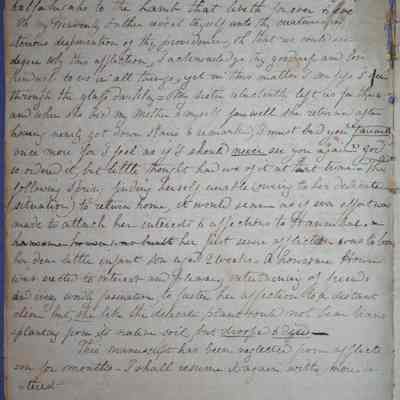 hallelujahs to the Lamb that liveth forever & ever
Oh my Heavenly Father reveal thyself unto thy creatures in
sterious dispensation of thy providence, Oh that we could in
degree why this affliction, I acknowledge thy goodness and lov
kindness to us in all things, yet in this matter I am left to see
through the glass darkly = My sister reluctantly left us for
and when she bid my Mother & myself farewell she returned after
having nearly got down stairs & remarked, I must bid you farewell
once more for I feel as if I should never see you again. God
so ordered it, but little thought had we of it at that time = The
following Spring finding herself unable owing to her delicate
(situation) to return home, it would seem as if every effort was
made to attach her interests & affections to
handsome house was built her first severe affliction was to lose
her dear little infant son aged 2 weeks = A handsome House
was erected to interest and please, every variety of friends
and every worldly fascination to foster her affection to a distant
clime but she like the delicate plant would not bear trans
=planting from its native soil, but droop'd & died =
This manuscript has been neglected from afflicti
=on for 9 months = I shall resume it again with more in
=terest =